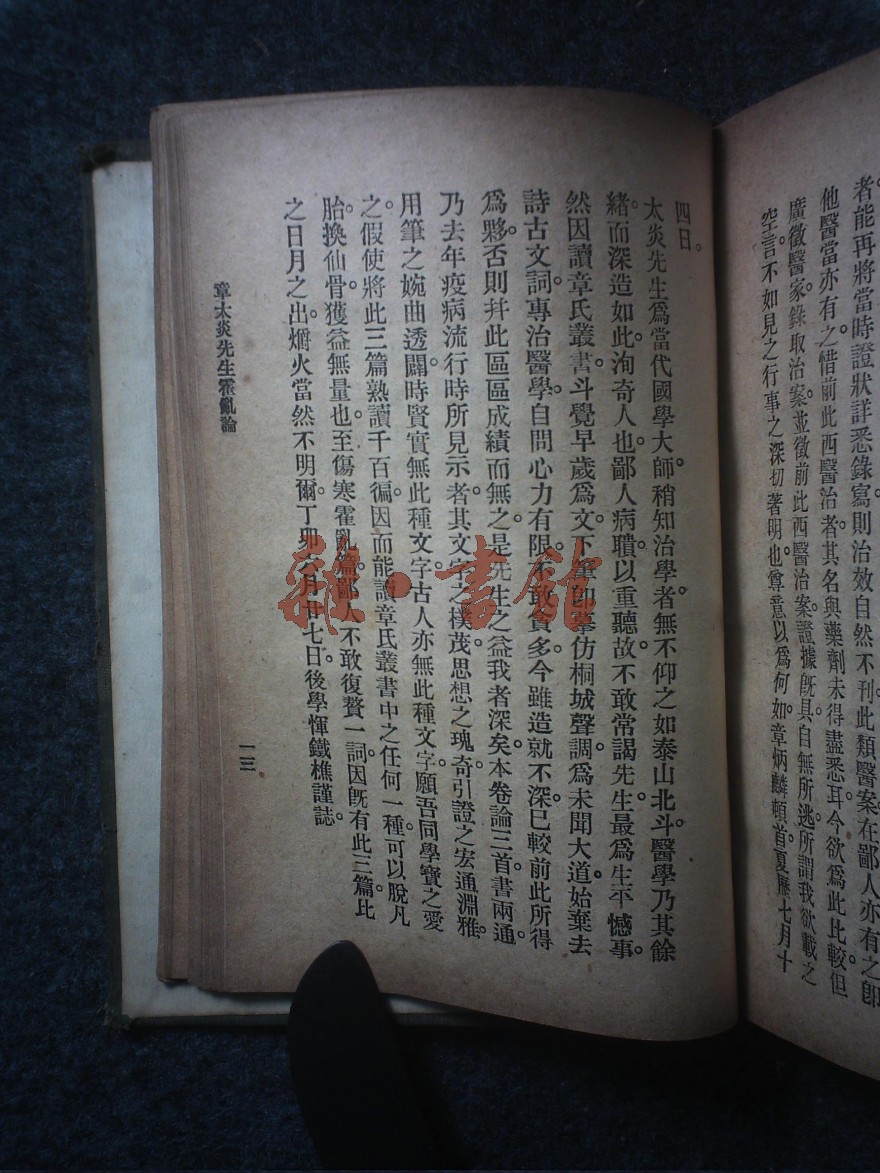 者能再將當時證狀詳悉錄寫則治效自然不刊此類醫案在鄙人亦有之卽
他醫當亦有之惜前此西醫治者其名與藥劑未得盡悉耳今欲爲此比較但
廣徵醫家錄取治案並徵前此西醫治案證據旣具自無所逃所謂我欲載之
空言不如見之行事之深切著明也尊意以爲何如章炳麟頓首夏曆七月十
四日。
太炎先生爲當代國學大師。稍知治學者。無不仰之如泰山北斗。醫學乃其餘
緒。而深造如此。洵奇人也。鄙人病聵。以重聽故。不敢常謁先生。最爲生平憾事。
然因讀章氏叢書。斗覺早歲爲文。下筆卽摹仿桐城聲調。爲未聞大道。始棄去
詩古文詞。專治醫學。自問心力有限。不敢貪多。今雖造就不深。已較前此所得
爲夥。否則幷此區區成績而無之。是先生之益我者深矣。本卷論三首。書兩通。
乃去年疫病流行時所見示者。其文字之樸茂。思想之瑰奇。引證之宏通淵雅。
用筆之婉曲透闢。時賢實無此種文字。古人亦無此種文字。願吾同學寶之愛
之。假使將此三篇熟讀千百徧。因而能讀章氏叢書中之任何一種。可以脫凡
胎。換仙骨。獲益無量也。至傷寒霍亂篇。鄙人不敢復贅一詞。因旣有此三篇。比
之日月之出。爝火當然不明爾。丁卯六月廿七日。後學惲鐵樵謹誌。
章太炎先生霍亂論
一三
雜·書館